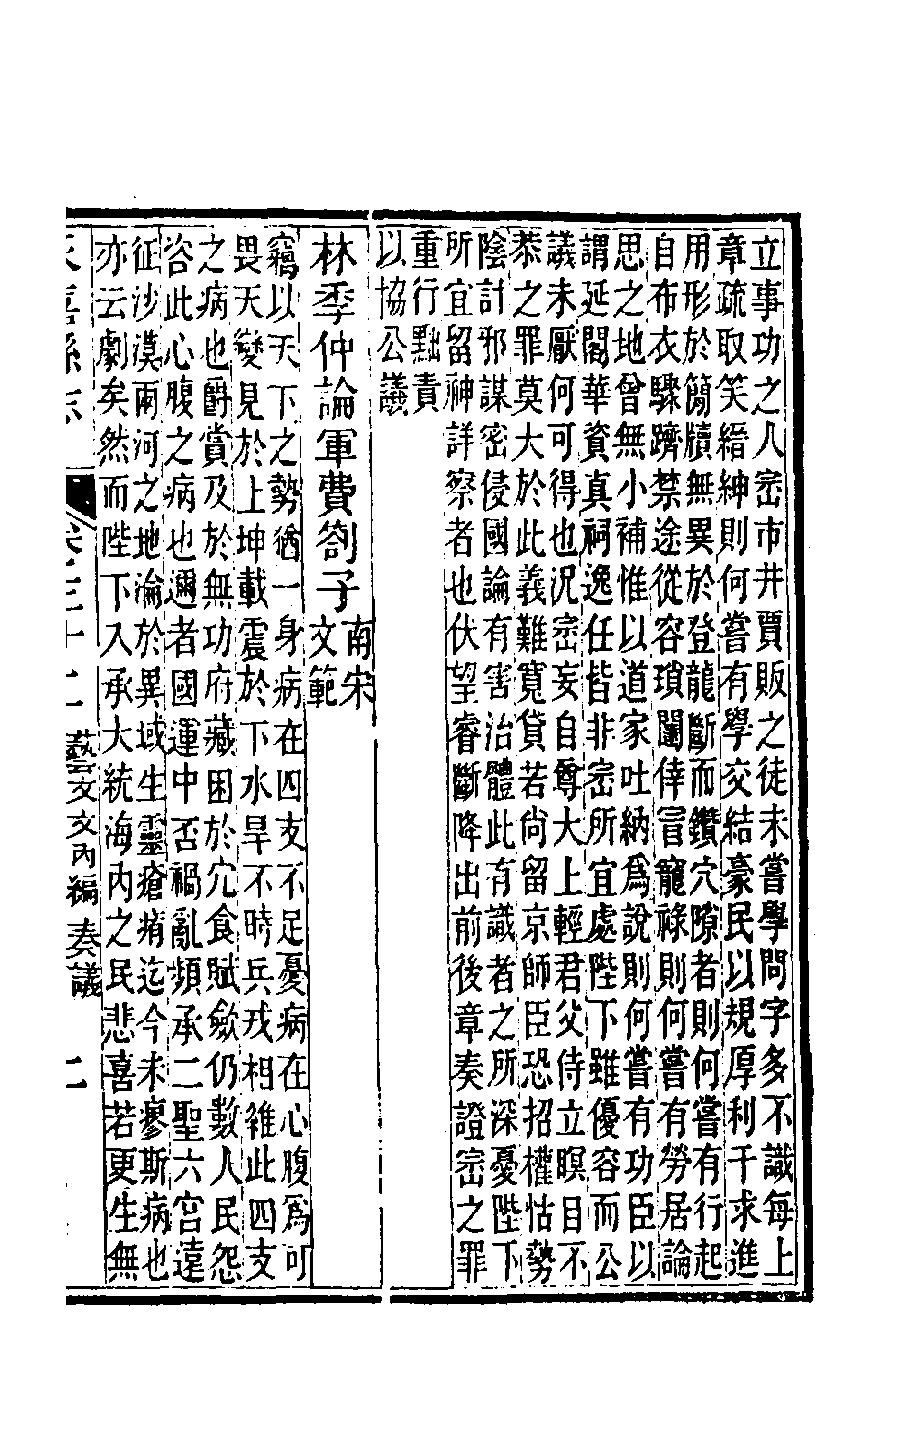 立事功之人密市井賈販之徒未嘗學問字多不識每上
章疏取笑縉紳則何嘗有學交結豪民以規厚利干求進
用形於簡牘無異於登龍斷而鑽穴隙者則何嘗有行起
自布衣驟躋禁途從容瑣闥倖冒寵祿則何嘗有勞居論
思之地曾無小補惟以道家吐納爲說則何嘗有功臣以
謂延閣華資真祠逸任皆非密所宜處陛下雖優容而公
議未厭何可得也況密妄自尊大上輕君父侍立瞑目不
恭之罪莫大於此義難寬貸若尚留京師臣恐招權怙勢
陰計邪謀密侵國論有害治體此有識者之所深憂陛下
所宜留神詳察者也伏望睿斷降出前後章奏證密之罪
重行黜責
以協公議
林季仲論軍費劄子南宋文範
竊以天下之勢猶一身病在四支不足憂病在心腹爲可
畏天變見於上坤載震於下水旱不時兵戎相雜此四支
之病也爵賞及於無功府藏困於宂食賦斂仍數人民怨
咨此心腹之病也邇者國運中否禍亂頻承二聖六宮遠
征沙漠兩河之地淪於異域生靈瘡痏迄今未瘳斯病也
亦云劇矣然而陛下入承大統海內之民悲喜若更生無
縣志 卷三十二 藝文文內編 奏議 二